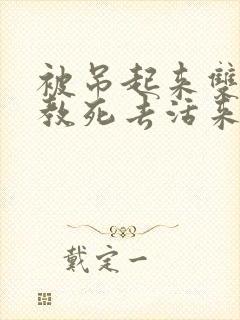 被吊起来雙
教死去活来
戴定一